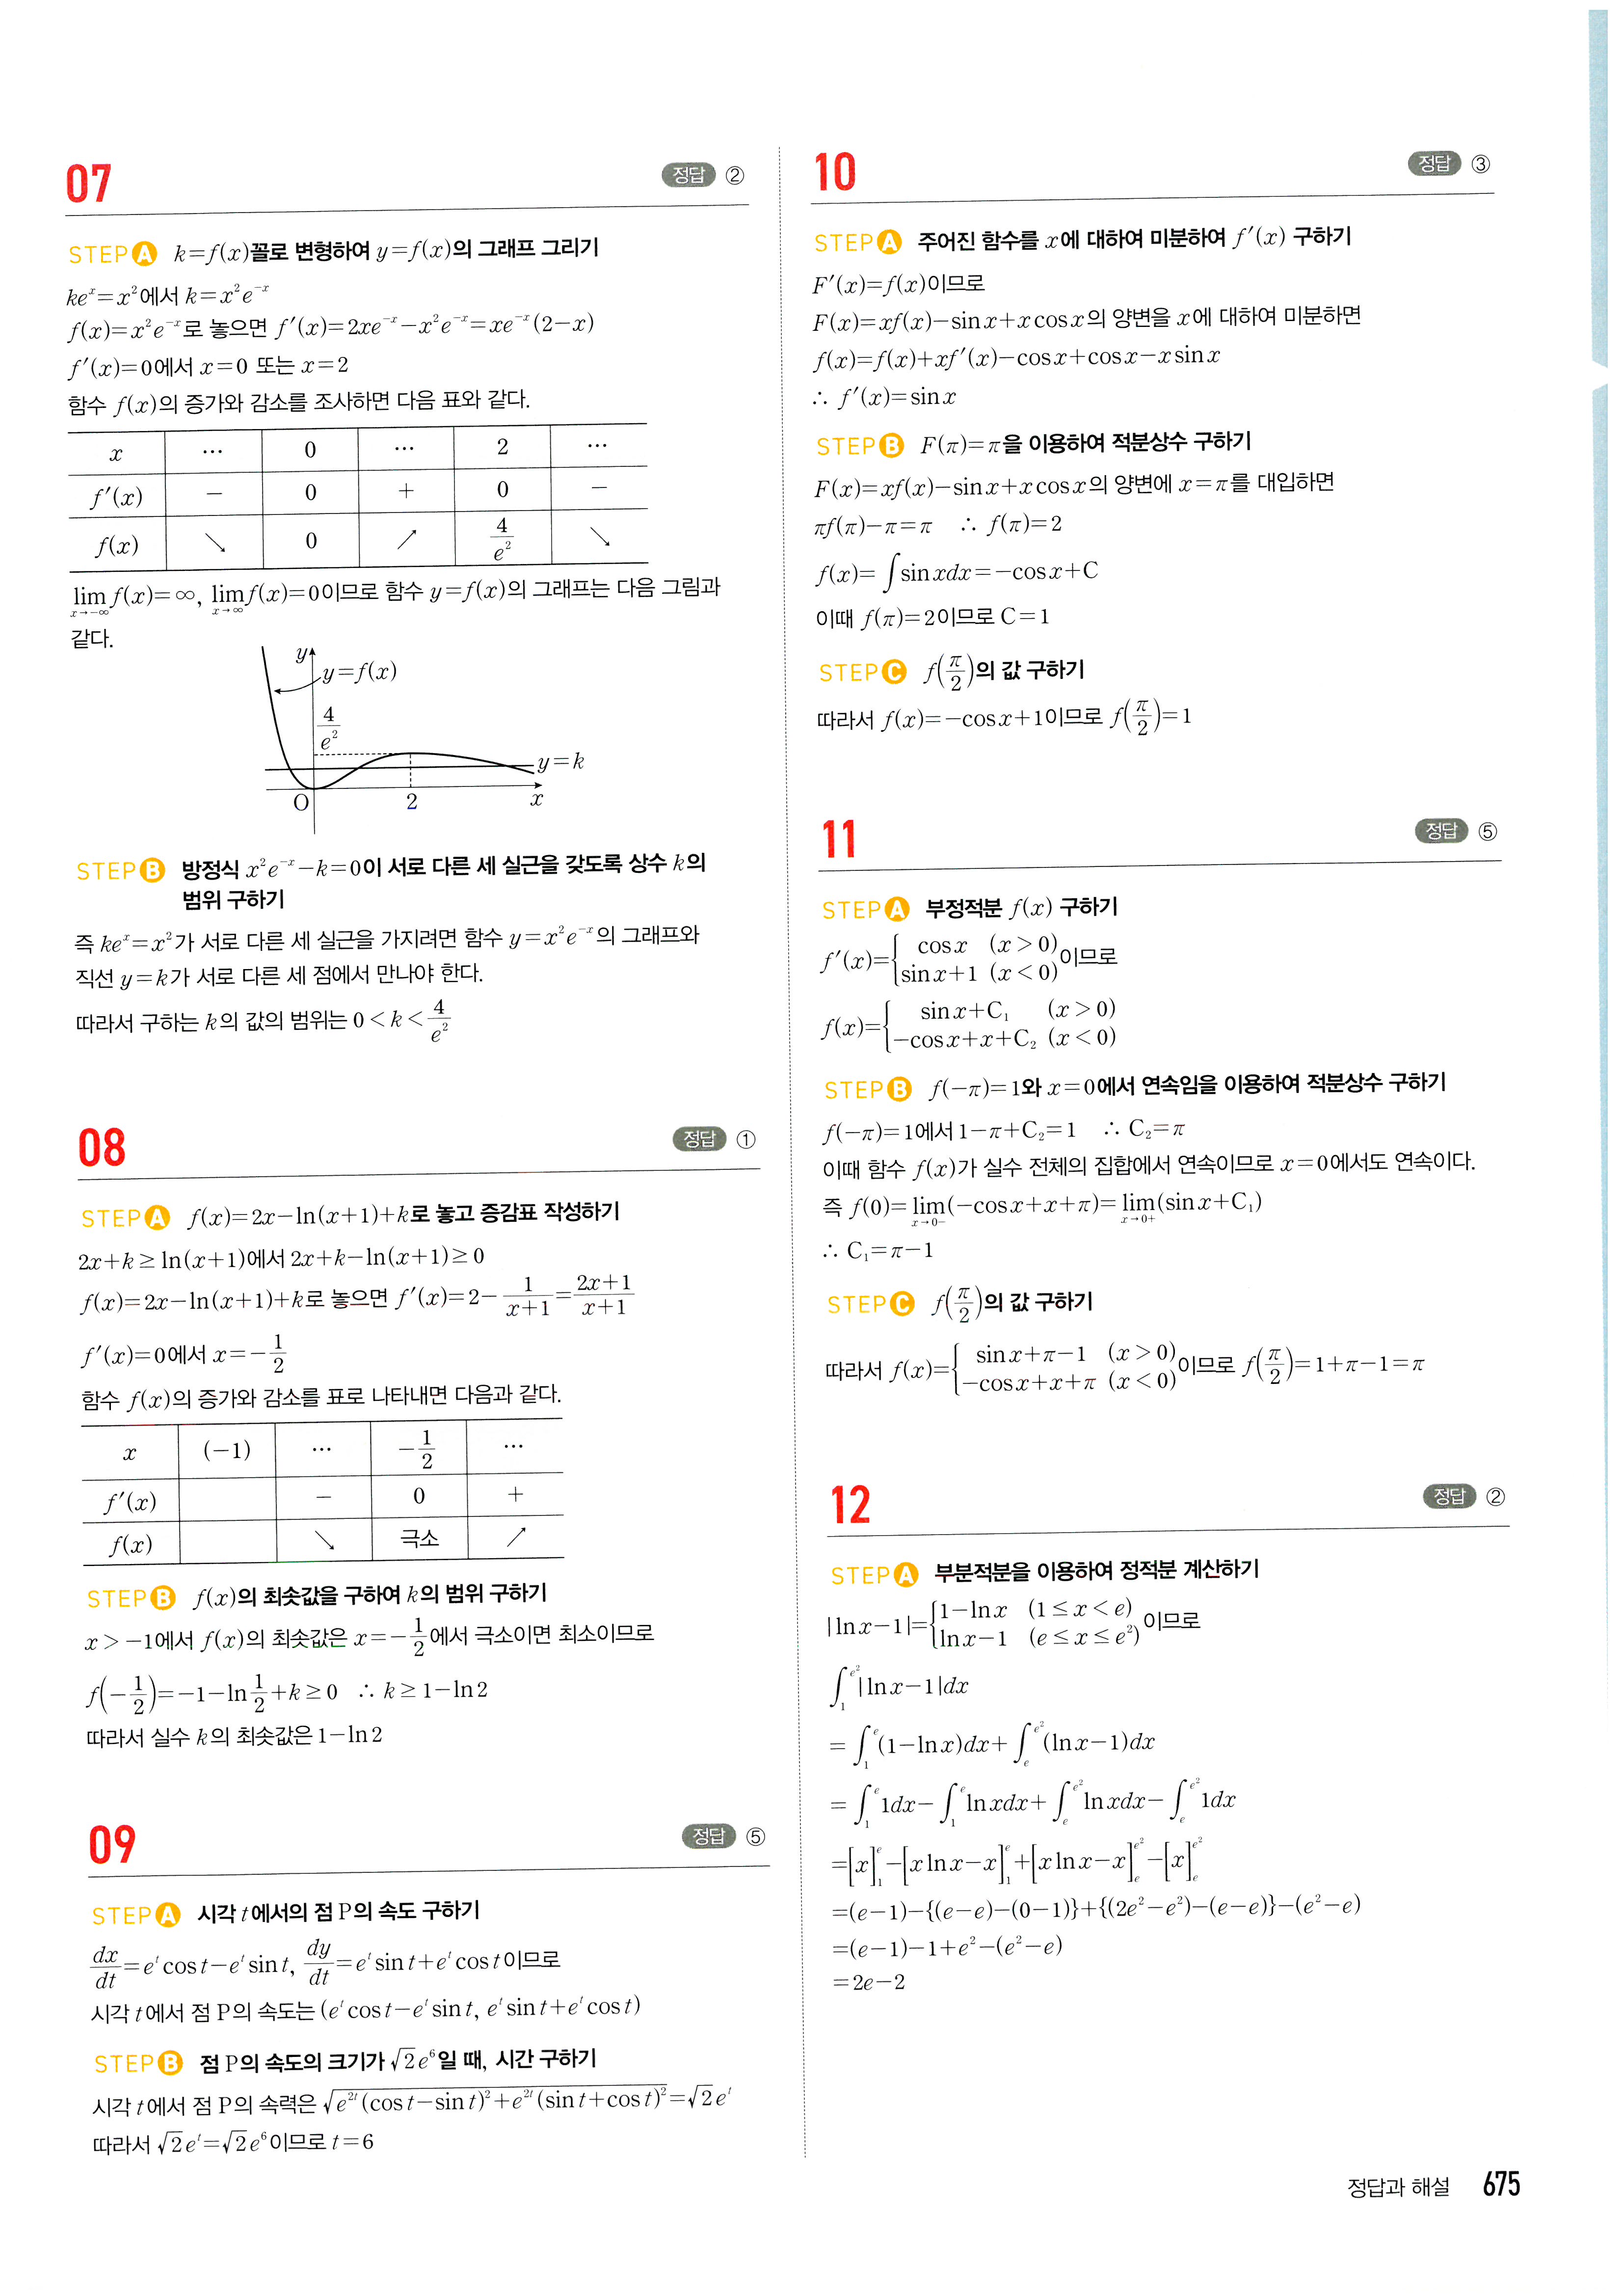 07
정답 ②
STEP A k=f(x)꼴로 변형하여 y=f(x)의 그래프 그리기
keˣ=x²에서 k=x²e⁻ˣ
f(x)=x²e⁻ˣ로 놓으면 f′(x)=2xe⁻ˣ−x²e⁻ˣ=xe⁻ˣ(2−x)
f′(x)=0에서 x=0 또는 x=2
함수 f(x)의 증가와 감소를 조사하면 다음 표와 같다.
x ⋯ 0 ⋯ 2 ⋯
f′(x) − 0 + 0 −
f(x) ↘ 0 ↗ 4/e² ↘
lim_{x→−∞} f(x)=∞, lim_{x→∞} f(x)=0이므로 함수 y=f(x)의 그래프는 다음 그림과
같다.
y
y=f(x)
4/e²
y=k
O 2 x
STEP B 방정식 x²e⁻ˣ−k=0이 서로 다른 세 실근을 갖도록 상수 k의
범위 구하기
즉 keˣ=x²가 서로 다른 세 실근을 가지려면 함수 y=x²e⁻ˣ의 그래프와
직선 y=k가 서로 다른 세 점에서 만나야 한다.
따라서 구하는 k의 값의 범위는 0<k<4/e²
08
정답 ①
STEP A f(x)=2x−ln(x+1)+k로 놓고 증감표 작성하기
2x+k≥ln(x+1)에서 2x+k−ln(x+1)≥0
f(x)=2x−ln(x+1)+k로 놓으면 f′(x)=2−1/(x+1)=(2x+1)/(x+1)
f′(x)=0에서 x=−1/2
함수 f(x)의 증가와 감소를 표로 나타내면 다음과 같다.
x (−1) ⋯ −1/2 ⋯
f′(x) − 0 +
f(x) ↘ 극소 ↗
STEP B f(x)의 최솟값을 구하여 k의 범위 구하기
x>−1에서 f(x)의 최솟값은 x=−1/2에서 극소이면 최소이므로
f(−1/2)=−1−ln1/2+k≥0 ∴ k≥1−ln2
따라서 실수 k의 최솟값은 1−ln2
09
정답 ⑤
STEP A 시각 t에서의 점 P의 속도 구하기
dx/dt=eᵗcos t−eᵗsin t, dy/dt=eᵗsin t+eᵗcos t이므로
시각 t에서 점 P의 속도는 (eᵗcos t−eᵗsin t, eᵗsin t+eᵗcos t)
STEP B 점 P의 속도의 크기가 √2e⁶일 때, 시간 구하기
시각 t에서 점 P의 속력은 √(e²ᵗ(cos t−sin t)²+e²ᵗ(sin t+cos t)²)=√2eᵗ
따라서 √2eᵗ=√2e⁶이므로 t=6
10
정답 ③
STEP A 주어진 함수를 x에 대하여 미분하여 f′(x) 구하기
F′(x)=f(x)이므로
F(x)=xf(x)−sinx+xcosx의 양변을 x에 대하여 미분하면
f(x)=f(x)+xf′(x)−cosx+cosx−xsinx
∴ f′(x)=sinx
STEP B F(π)=π을 이용하여 적분상수 구하기
F(x)=xf(x)−sinx+xcosx의 양변에 x=π를 대입하면
πf(π)−π=π ∴ f(π)=2
f(x)=∫sinxdx=−cosx+C
이때 f(π)=2이므로 C=1
STEP C f(π/2)의 값 구하기
따라서 f(x)=−cosx+1이므로 f(π/2)=1
11
정답 ⑤
STEP A 부정적분 f(x) 구하기
f′(x)={cosx (x>0) / sinx+1 (x<0)이므로
f(x)={sinx+C₁ (x>0) / −cosx+x+C₂ (x<0)
STEP B f(−π)=1와 x=0에서 연속임을 이용하여 적분상수 구하기
f(−π)=1에서 1−π+C₂=1 ∴ C₂=π
이때 함수 f(x)가 실수 전체의 집합에서 연속이므로 x=0에서도 연속이다.
즉 f(0)=lim_{x→0−}(−cosx+x+π)=lim_{x→0+}(sinx+C₁)
∴ C₁=π−1
STEP C f(π/2)의 값 구하기
따라서 f(x)={sinx+π−1 (x>0) / −cosx+x+π (x<0)이므로 f(π/2)=1+π−1=π
12
정답 ②
STEP A 부분적분을 이용하여 정적분 계산하기
|lnx−1|={1−lnx (1≤x<e) / lnx−1 (e≤x≤e²)이므로
∫₁^{e²}|lnx−1|dx
=∫₁^e(1−lnx)dx+∫_e^{e²}(lnx−1)dx
=∫₁^e 1dx−∫₁^e lnxdx+∫_e^{e²}lnxdx−∫_e^{e²}1dx
=[x]₁^e−[xlnx−x]₁^e+[xlnx−x]_e^{e²}−[x]_e^{e²}
=(e−1)−{(e−e)−(0−1)}+{(2e²−e²)−(e−e)}−(e²−e)
=(e−1)−1+e²−(e²−e)
=2e−2
정답과 해설 675